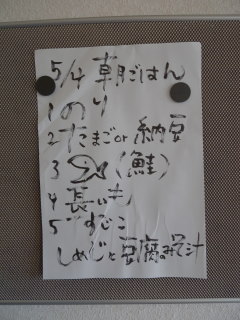 5/4 朝ごはん
1 のり
2 たまごor納豆
3 (鮭)
4 長いも
5 すじこ
しめじと豆腐のみそ汁